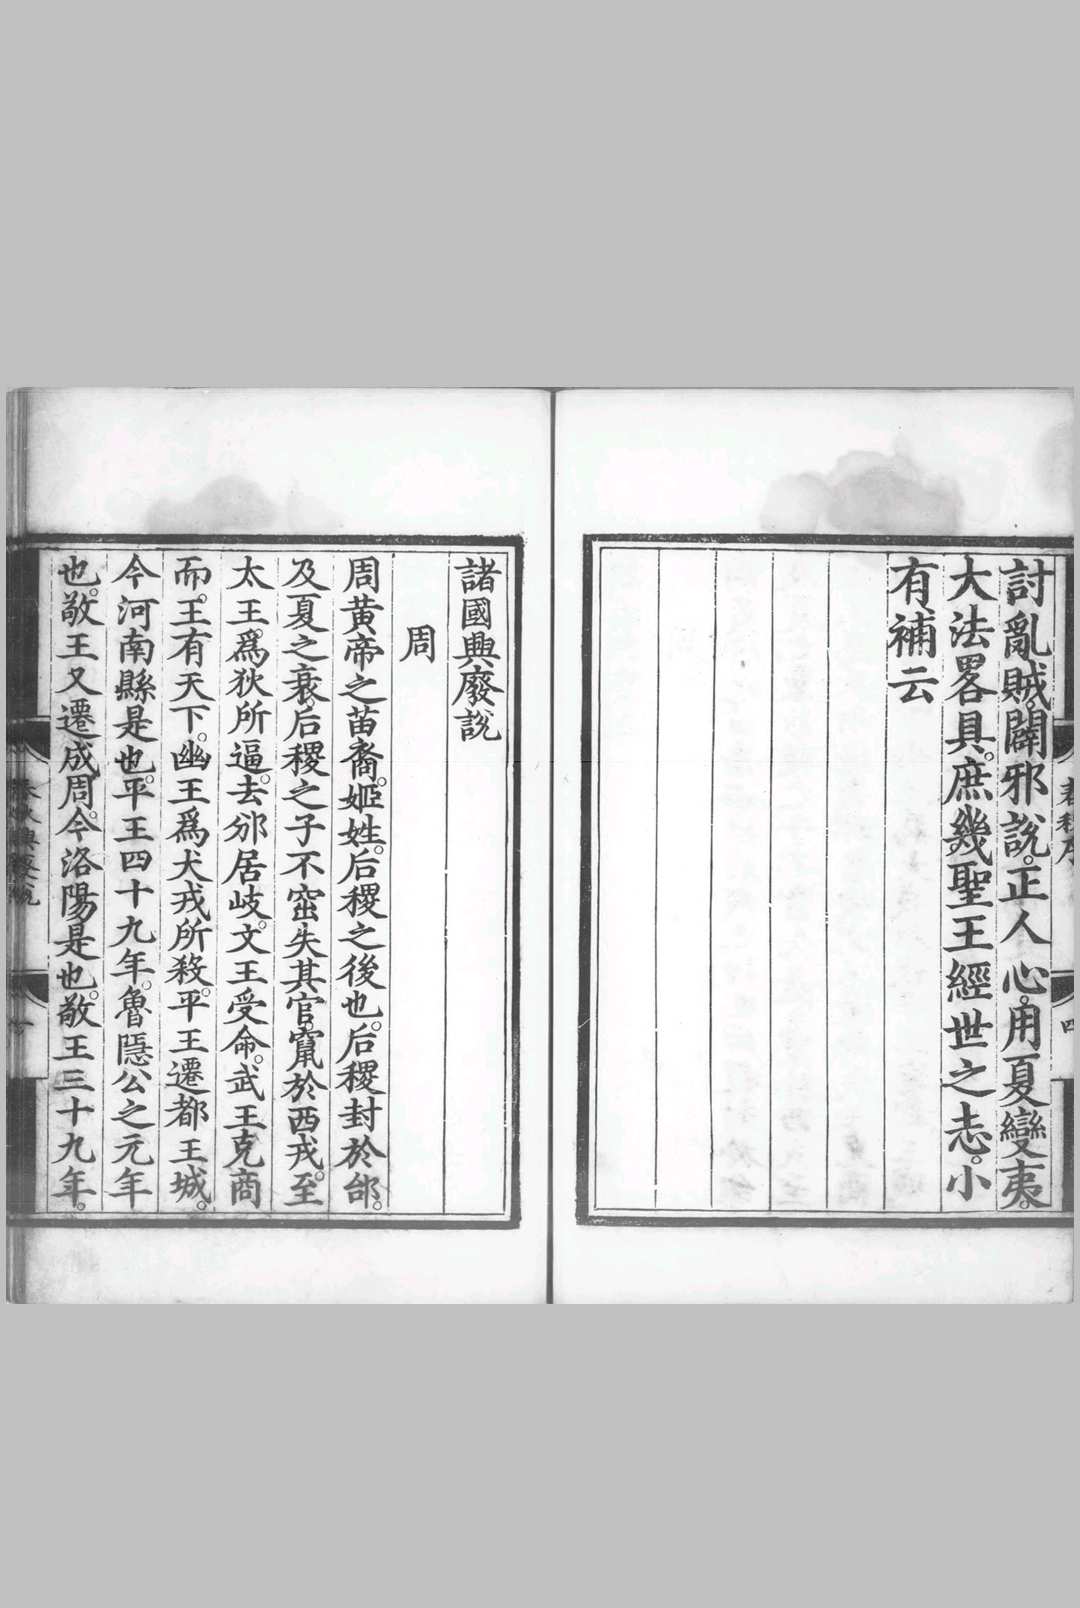 討亂賊。闢邪說。正人心。用夏變夷。
大法畧具。庶幾聖王經世之志。小
有補云
諸國興廢說
周
周黃帝之苗裔。姬姓。后稷之後也。后稷封於邰。
及夏之衰。后稷之子不窋失其官。竄於西戎。至
太王。爲狄所逼。去邠居岐。文王受命。武王克商
而。王有天下。幽王爲犬戎所殺。平王遷都王城。
今河南縣是也。平王四十九年。魯隱公之元年
也。敬王又遷成周。今洛陽是也。敬王三十九年。